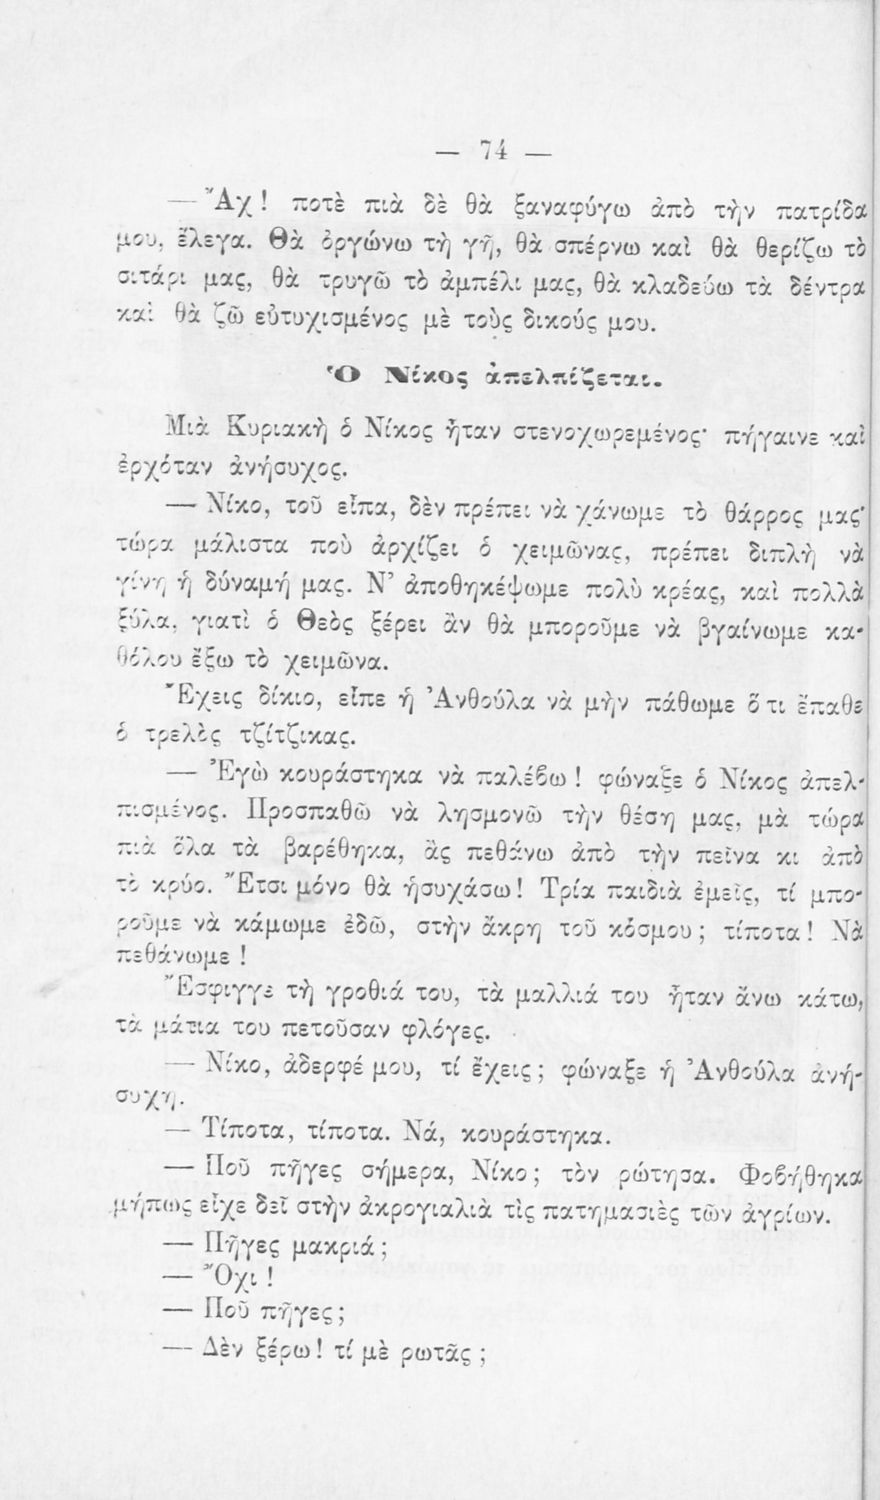 — 74 —
— Ἄχ! ποτὲ πιὰ δὲ θὰ ξαναφύγω ἀπὸ τὴν πατρίδα
μου, ἔλεγα. Θὰ ὀργώνω τὴ γῆ, θὰ σπέρνω καὶ θὰ θερίζω τὸ
σιτάρι μας, θὰ τρυγῶ τὸ ἀμπέλι μας, θὰ κλαδεύω τὰ δέντρα
καὶ θὰ ζῶ εὐτυχισμένος μὲ τοὺς δικούς μου.
Ὁ Νίκος ἀπελπίζεται.
Μιὰ Κυριακὴ ὁ Νίκος ἦταν στενοχωρεμένος· πήγαινε καὶ
ἐρχόταν ἀνήσυχος.
— Νίκο, τοῦ εἶπα, δὲν πρέπει νὰ χάνωμε τὸ θάρρος μας·
τώρα μάλιστα ποὺ ἀρχίζει ὁ χειμῶνας, πρέπει διπλὴ νὰ
γίνῃ ἡ δύναμή μας. Ν’ ἀποθηκέψωμε πολὺ κρέας, καὶ πολλὰ
ξύλα, γιατὶ ὁ Θεὸς ξέρει ἂν θὰ μποροῦμε νὰ βγαίνωμε κα-
θόλου ἔξω τὸ χειμῶνα.
Ἔχεις δίκιο, εἶπε ἡ Ἀνθούλα νὰ μὴν πάθωμε ὅ τι ἔπαθε
ὁ τρελὸς τζίτζικας.
— Ἐγὼ κουράστηκα νὰ παλέβω! φώναξε ὁ Νίκος ἀπελ-
πισμένος. Προσπαθῶ νὰ λησμονῶ τὴν θέση μας, μὰ τώρα
πιὰ ὅλα τὰ βαρέθηκα, ἂς πεθάνω ἀπὸ τὴν πεῖνα κι ἀπὸ
τὸ κρύο. Ἔτσι μόνο θὰ ἡσυχάσω! Τρία παιδιὰ ἐμεῖς, τί μπο-
ροῦμε νὰ κάμωμε ἐδῶ, στὴν ἄκρη τοῦ κόσμου; τίποτα! Νὰ
πεθάνωμε!
Ἔσφιγγε τὴ γροθιά του, τὰ μαλλιά του ἦταν ἄνω κάτω,
τὰ μάτια του πετοῦσαν φλόγες.
— Νίκο, ἀδερφέ μου, τί ἔχεις; φώναξε ἡ Ἀνθούλα ἀνή-
συχη.
— Τίποτα, τίποτα. Νά, κουράστηκα.
— Ποῦ πῆγες σήμερα, Νίκο; τὸν ρώτησα. Φοβήθηκα
μήπως εἶχε δεῖ στὴν ἀκρογιαλιὰ τὶς πατημασιὲς τῶν ἀγρίων.
— Πῆγες μακριά;
— Ὄχι!
— Ποῦ πῆγες;
— Δὲν ξέρω! τί μὲ ρωτᾶς;